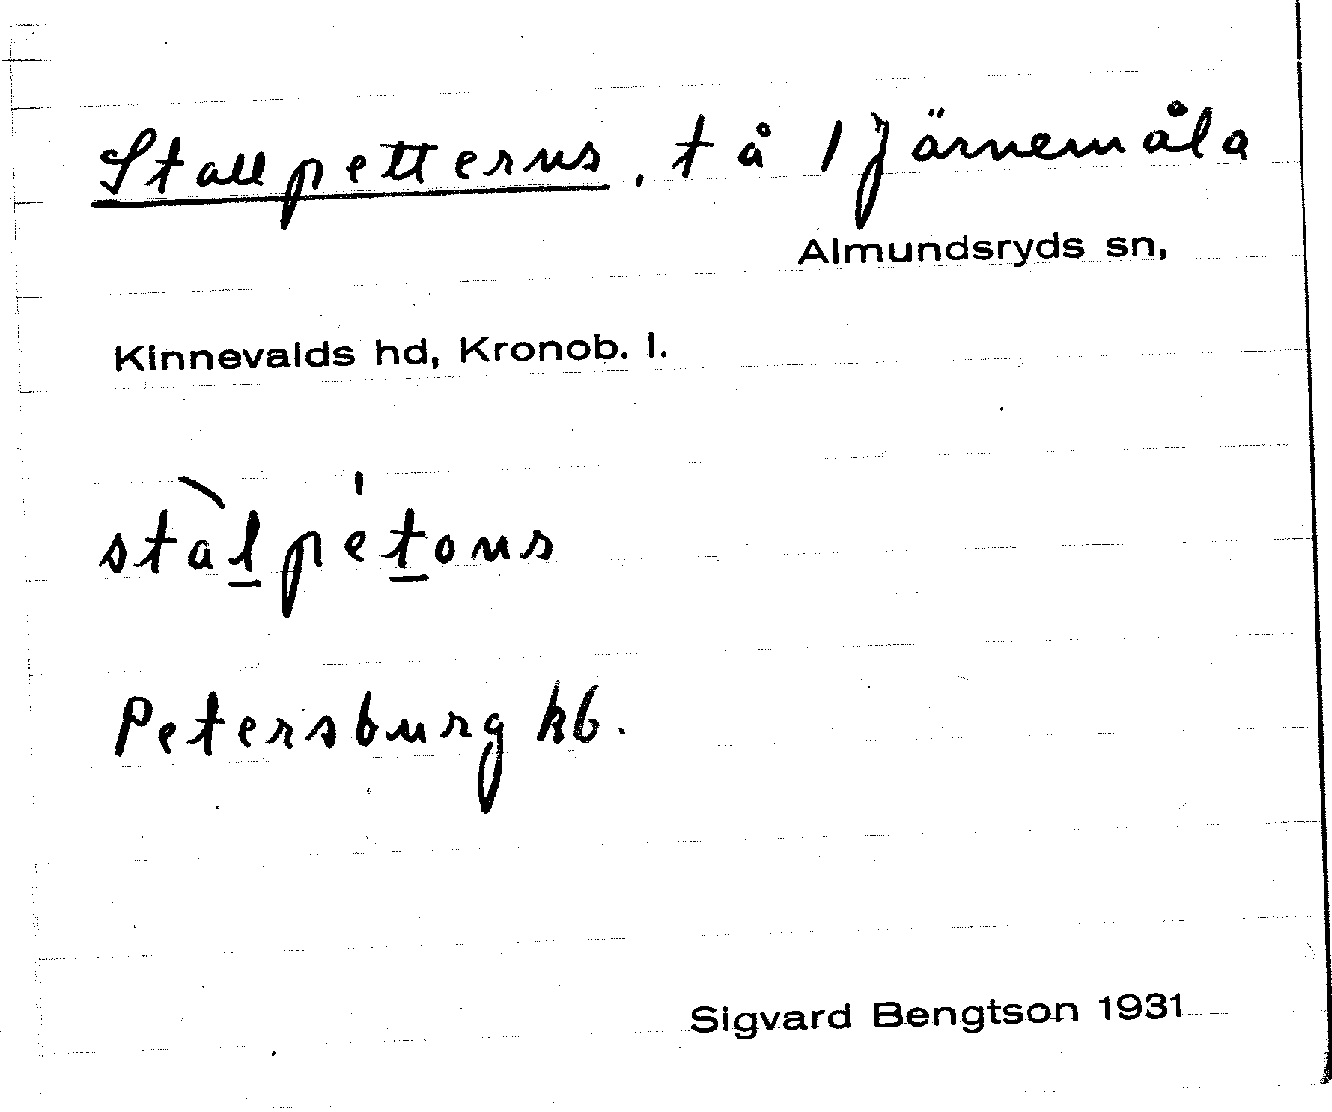 Stallpetterns, tå 1 Järnemåla
Almundsryds sn,
Kinnevalds hd, Kronob. l.
stàlpétons
Petersburg kb.
Sigvard Bengtson 1931